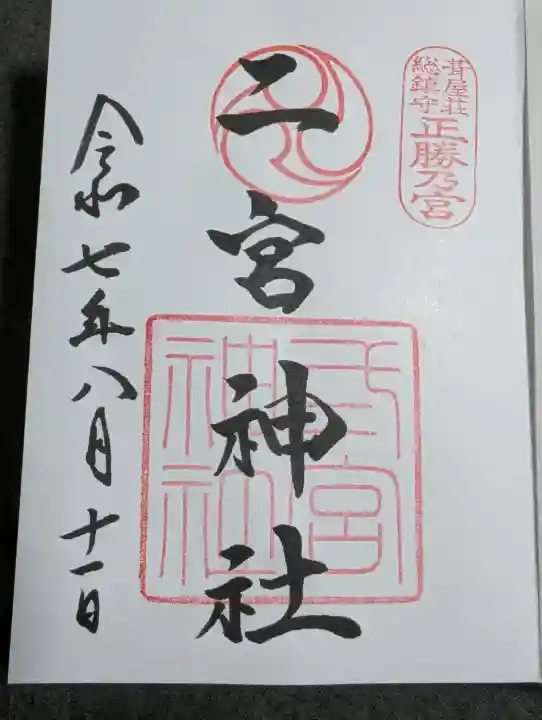 葺屋荘
総鎮守
正勝乃宮
二宮神社
弍宮
神社
令和七年八月十一日